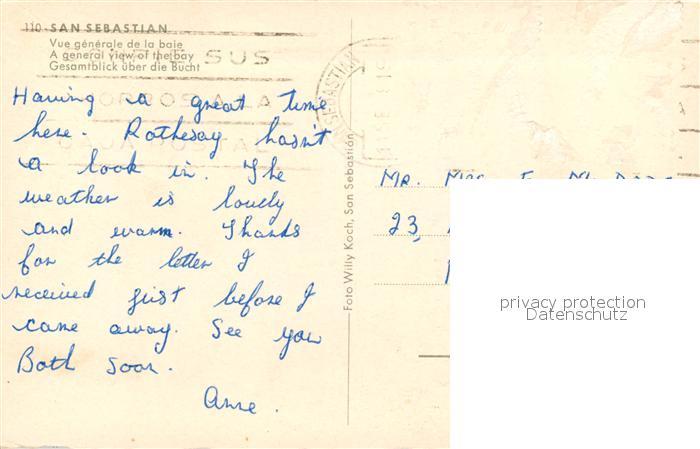 110 - SAN SEBASTIAN
Vue générale de la baie
A general view of the bay
Gesamtblick über die Bucht
SUS
Having a great time
here. Rothesay hasn't
a look in. The
weather is lovely
and warm. Thanks
for the letter I
received just before I
came away. See you
Both soon.
Anne.
Foto Willy Koch, San Sebastián
MR. MRS
23,
privacy protection
Datenschutz